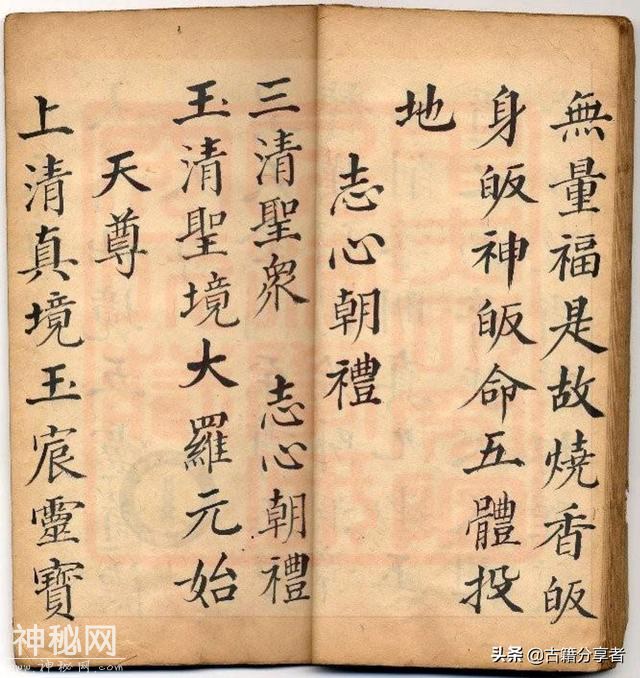 無量福是故燒香皈
身皈神皈命五體投
地
志心朝禮
三清聖衆 志心朝禮
玉清聖境大羅元始
天尊
上清真境玉宸靈寶
神秘网
www.神秘网.com
头条 @古籍分享者